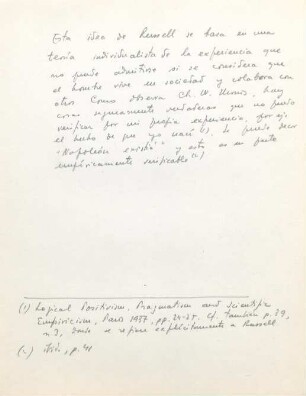 Esta idea de Russell se basa en una
teoría individualista de la experiencia que
no puede admitirse si se considera que
el hombre vive en sociedad y colabora con
otros. Como observa Ch. W. Morris, hay
cosas seguramente verdaderas que no puedo
verificar por mi propia experiencia, por ej.
el hecho de que yo nací (1). Yo puedo decir
"Napoleón existió" y esto es en parte
empíricamente verificable (2)
(1) Logical Positivism, Pragmatism and Scientific
Empiricism, Paris 1937, pp. 24-25. Cf. también p. 29,
n. 3, donde se refiere explícitamente a Russell
(2) Ibid., p. 41